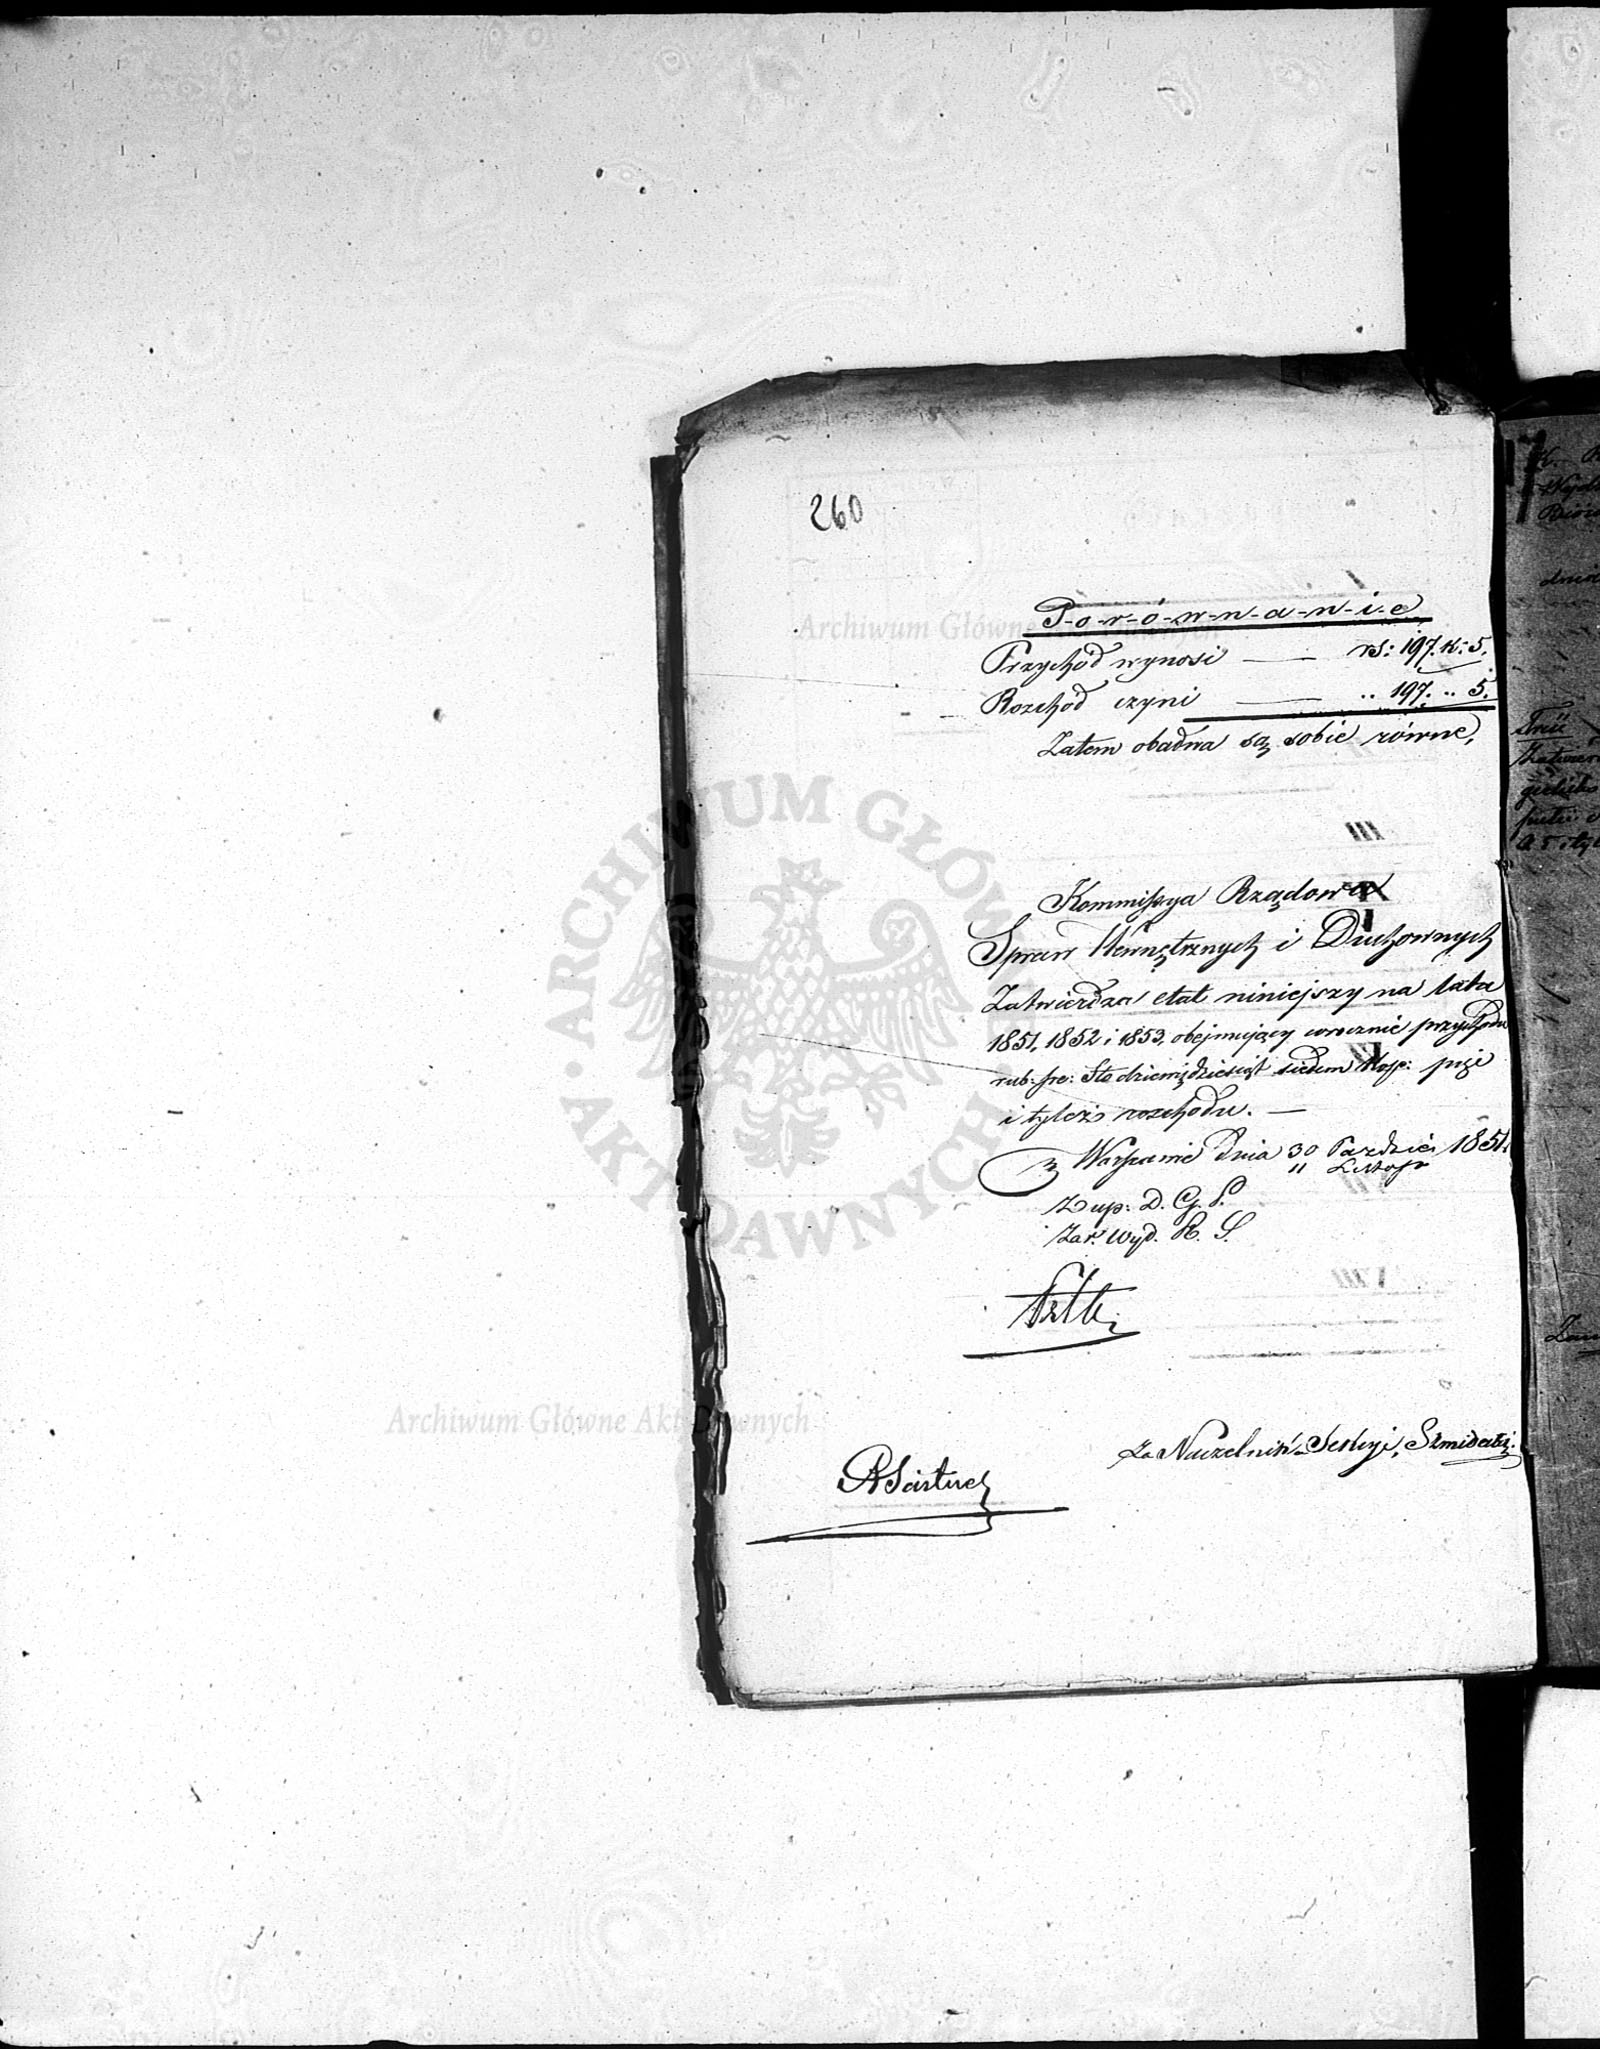 260
P-o-r-ó-w-n-a-n-i-e
Przychód wynosi — rs: 197. k: 5.
Rozchód czyni — „ 197. „ 5.
Zatem obadwa są sobie równe,
Kommissya Rządowa
Spraw Wewnętrznych i Duchownych
Zatwierdza etat niniejszy na lata
1851, 1852 i 1853, obejmujący corocznie przychodu
rub: sre: Sto dziewiędziesiąt siedem kop: pięć
i tyleż rozchodu. —
w Warszawie dnia 30 Paździer 1851.
11 Listop
Z up: D. G. P.
Zar. Wyd. K. S.
Za Naczelnik Sekcyi,
Archiwum Główne Akt Dawnych
ARCHIWUM GŁÓWNE AKT DAWNYCH
Archiwum Główne Akt Dawnych